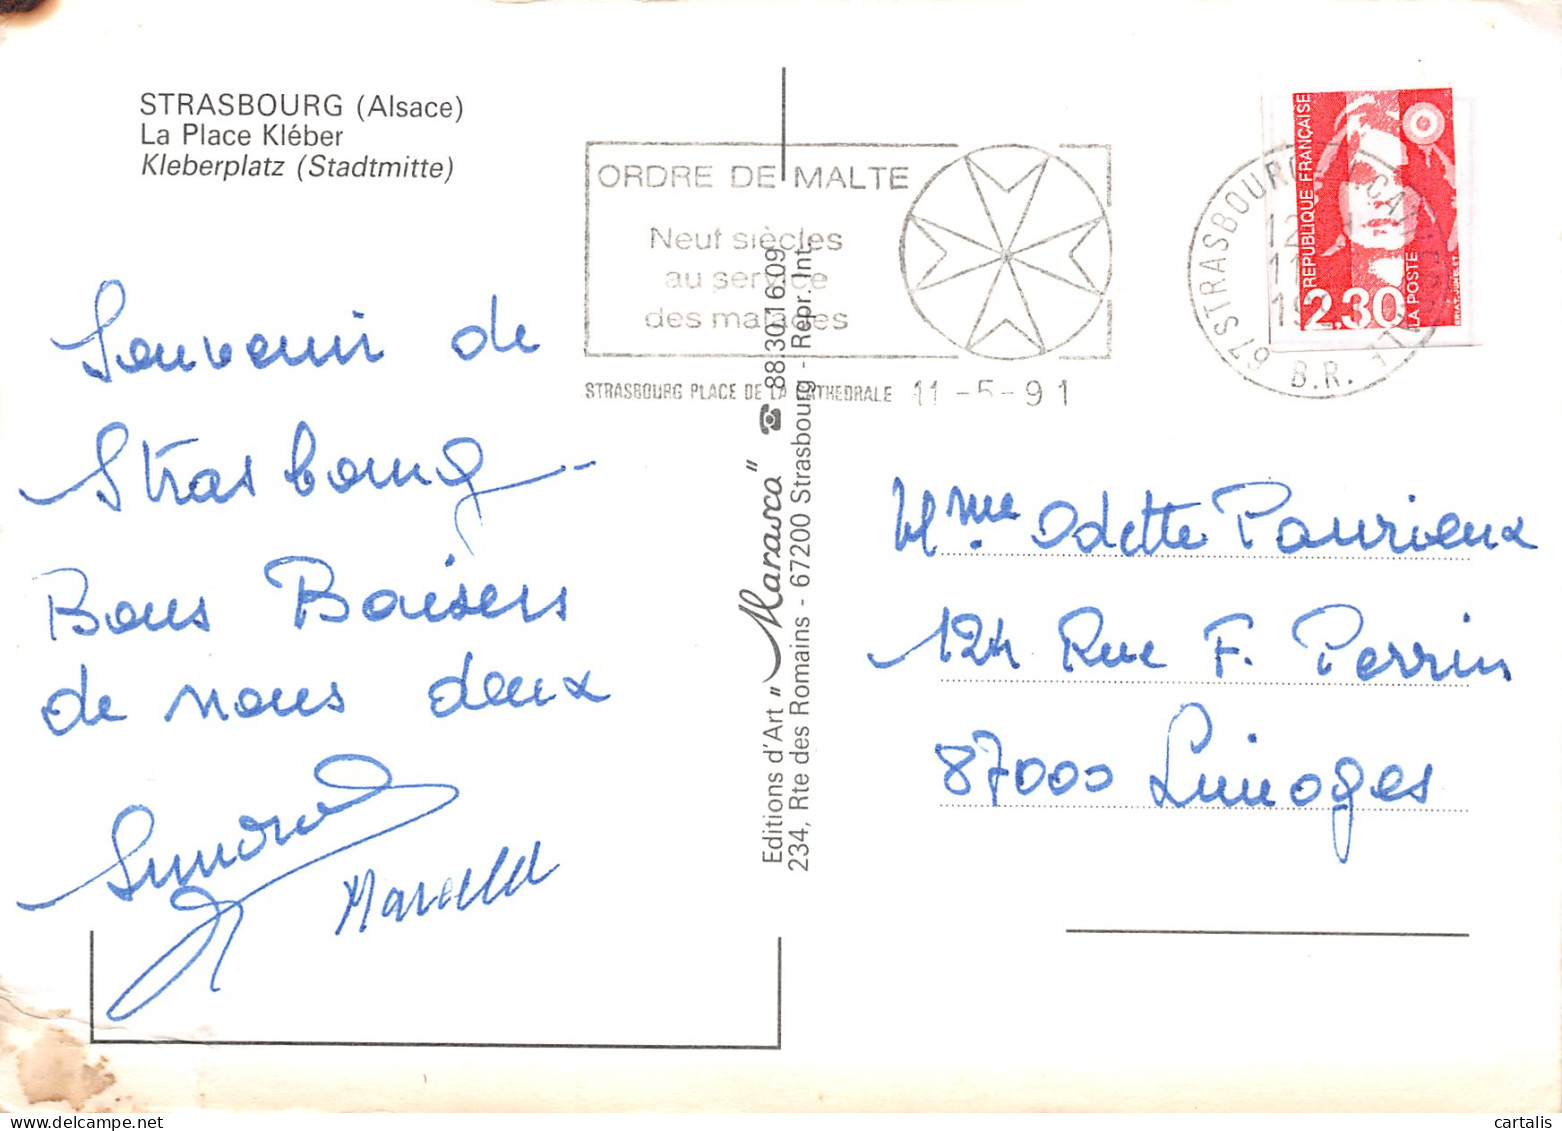 STRASBOURG (Alsace)
La Place Kléber
Kleberplatz (Stadtmitte)
ORDRE DE MALTE
Neuf siècles
au service
des malades
STRASBOURG PLACE DE LA CATHEDRALE 11-5-91
67 STRASBOURG
B.R.
RÉPUBLIQUE FRANÇAISE
2,30
LA POSTE
Souvenir de
Strasbourg
Bons Baisers
de nous deux
Marcelle
Editions d'Art "Marasca" ☎ 88.30.16.09
234, Rte des Romains - 67200 Strasbourg - Repr. Int.
Mme Odette Pourieux
124 Rue F. Perrin
87000 Limoges
cartalis